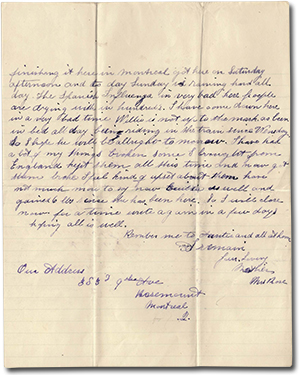 finishing it here in Montreal got here on Saturday
afternoon and to day Sunday is raining hard all
day. The Spanish influenza is very bad here people
are dying with in hundreds. I have come down here
in a very bad time Willie is not up to the mark as been
in bed all day being riding in the train since Thursday
So I hope he will be allright to morrow. I have had
a lot of my things broken since I brought from
England kept them all this time and now got
some broke I feel kind of upset about them have
not much more to say now is well and
gained 6 lbs since she has been here. So I will close
now for a time write again in a few days
hoping all is well.
Remember me to Auntie and all at home
I remain
Your loving
Mother
Mrs Rose
Our Address
858 9th Ave
Rosemount
Montreal